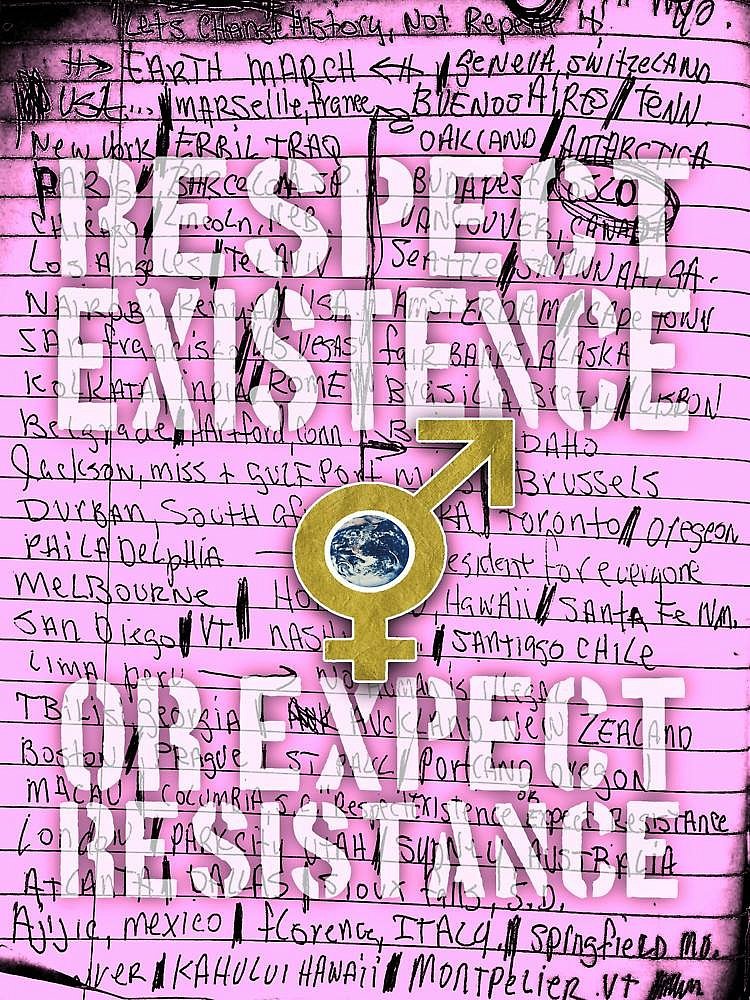 Let's Change History, Not Repeat it
EARTH MARCH GENEVA, SWITZELAND
USA... MARSEILLE, france BUENOS AIRES TENN.
New York ERBIL IRAQ OAKLAND ANTARCTICA
RESPECT
PARIS BARCELONA, SP. BUDAPEST OSLO
Chicago Lincoln, NEB. VANCOUVER, CANADA
Los Angeles TeL AVIV Seattle SAVANNAH, GA.
EXISTENCE
NAIROBI, Kenya USA AMSTERDAM CAPE TOWN
SAN francisco LAS VEGAS fair BANKS, ALASKA
KOLKATA india ROME BRASILIA BRAZIL LISBON
Belgrade Hartford, Conn. DAHO
Jackson, miss + GULFPORT Brussels
DURBAN, South Toronto Oregeon
PHILADELPHIA esident for everyone
MELBOURNE Hawaii SANTA FE NM.
SAN Diego VT. SANTIAGO CHILE
Lima, peru No HUMAN is illegal
OR EXPECT
TBILISI Georgia AUCKLAND NEW ZEALAND
Boston PRAGUE ST. PAUL PORTLAND Oregon
MACAU COLUMBIA S.C. "Respect Existence OR Expect Resistance
RESISTANCE
LONDON PARK CITY, UTAH SYDNEY AUSTRALIA
ATLANTA DALLAS SIOUX falls, S.D.
Ajijic, mexico florence, ITALY. SPringfield mo.
ver KAHULUI HAWAii MONTPELIER VT